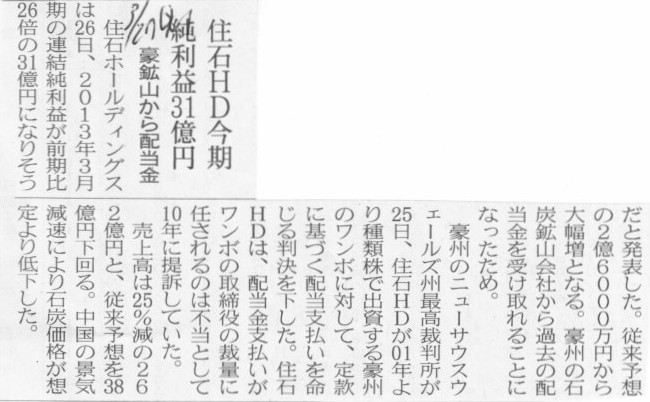 住石HD今期
純利益31億円
豪鉱山から配当金
3/27
住石ホールディングス
は26日、2013年3月
期の連結純利益が前期比
26倍の31億円になりそう
だと発表した。従来予想
の2億6000万円から
大幅増となる。豪州の石
炭鉱山会社から過去の配
当金を受け取れることに
なったため。
豪州のニューサウスウ
ェールズ州最高裁判所が
25日、住石HDが01年よ
り種類株で出資する豪州
のワンボに対して、定款
に基づく配当支払いを命
じる判決を下した。住石
HDは、配当金支払いが
ワンボの取締役の裁量に
任されるのは不当として
10年に提訴していた。
売上高は25%減の26
2億円と、従来予想を38
億円下回る。中国の景気
減速により石炭価格が想
定より低下した。